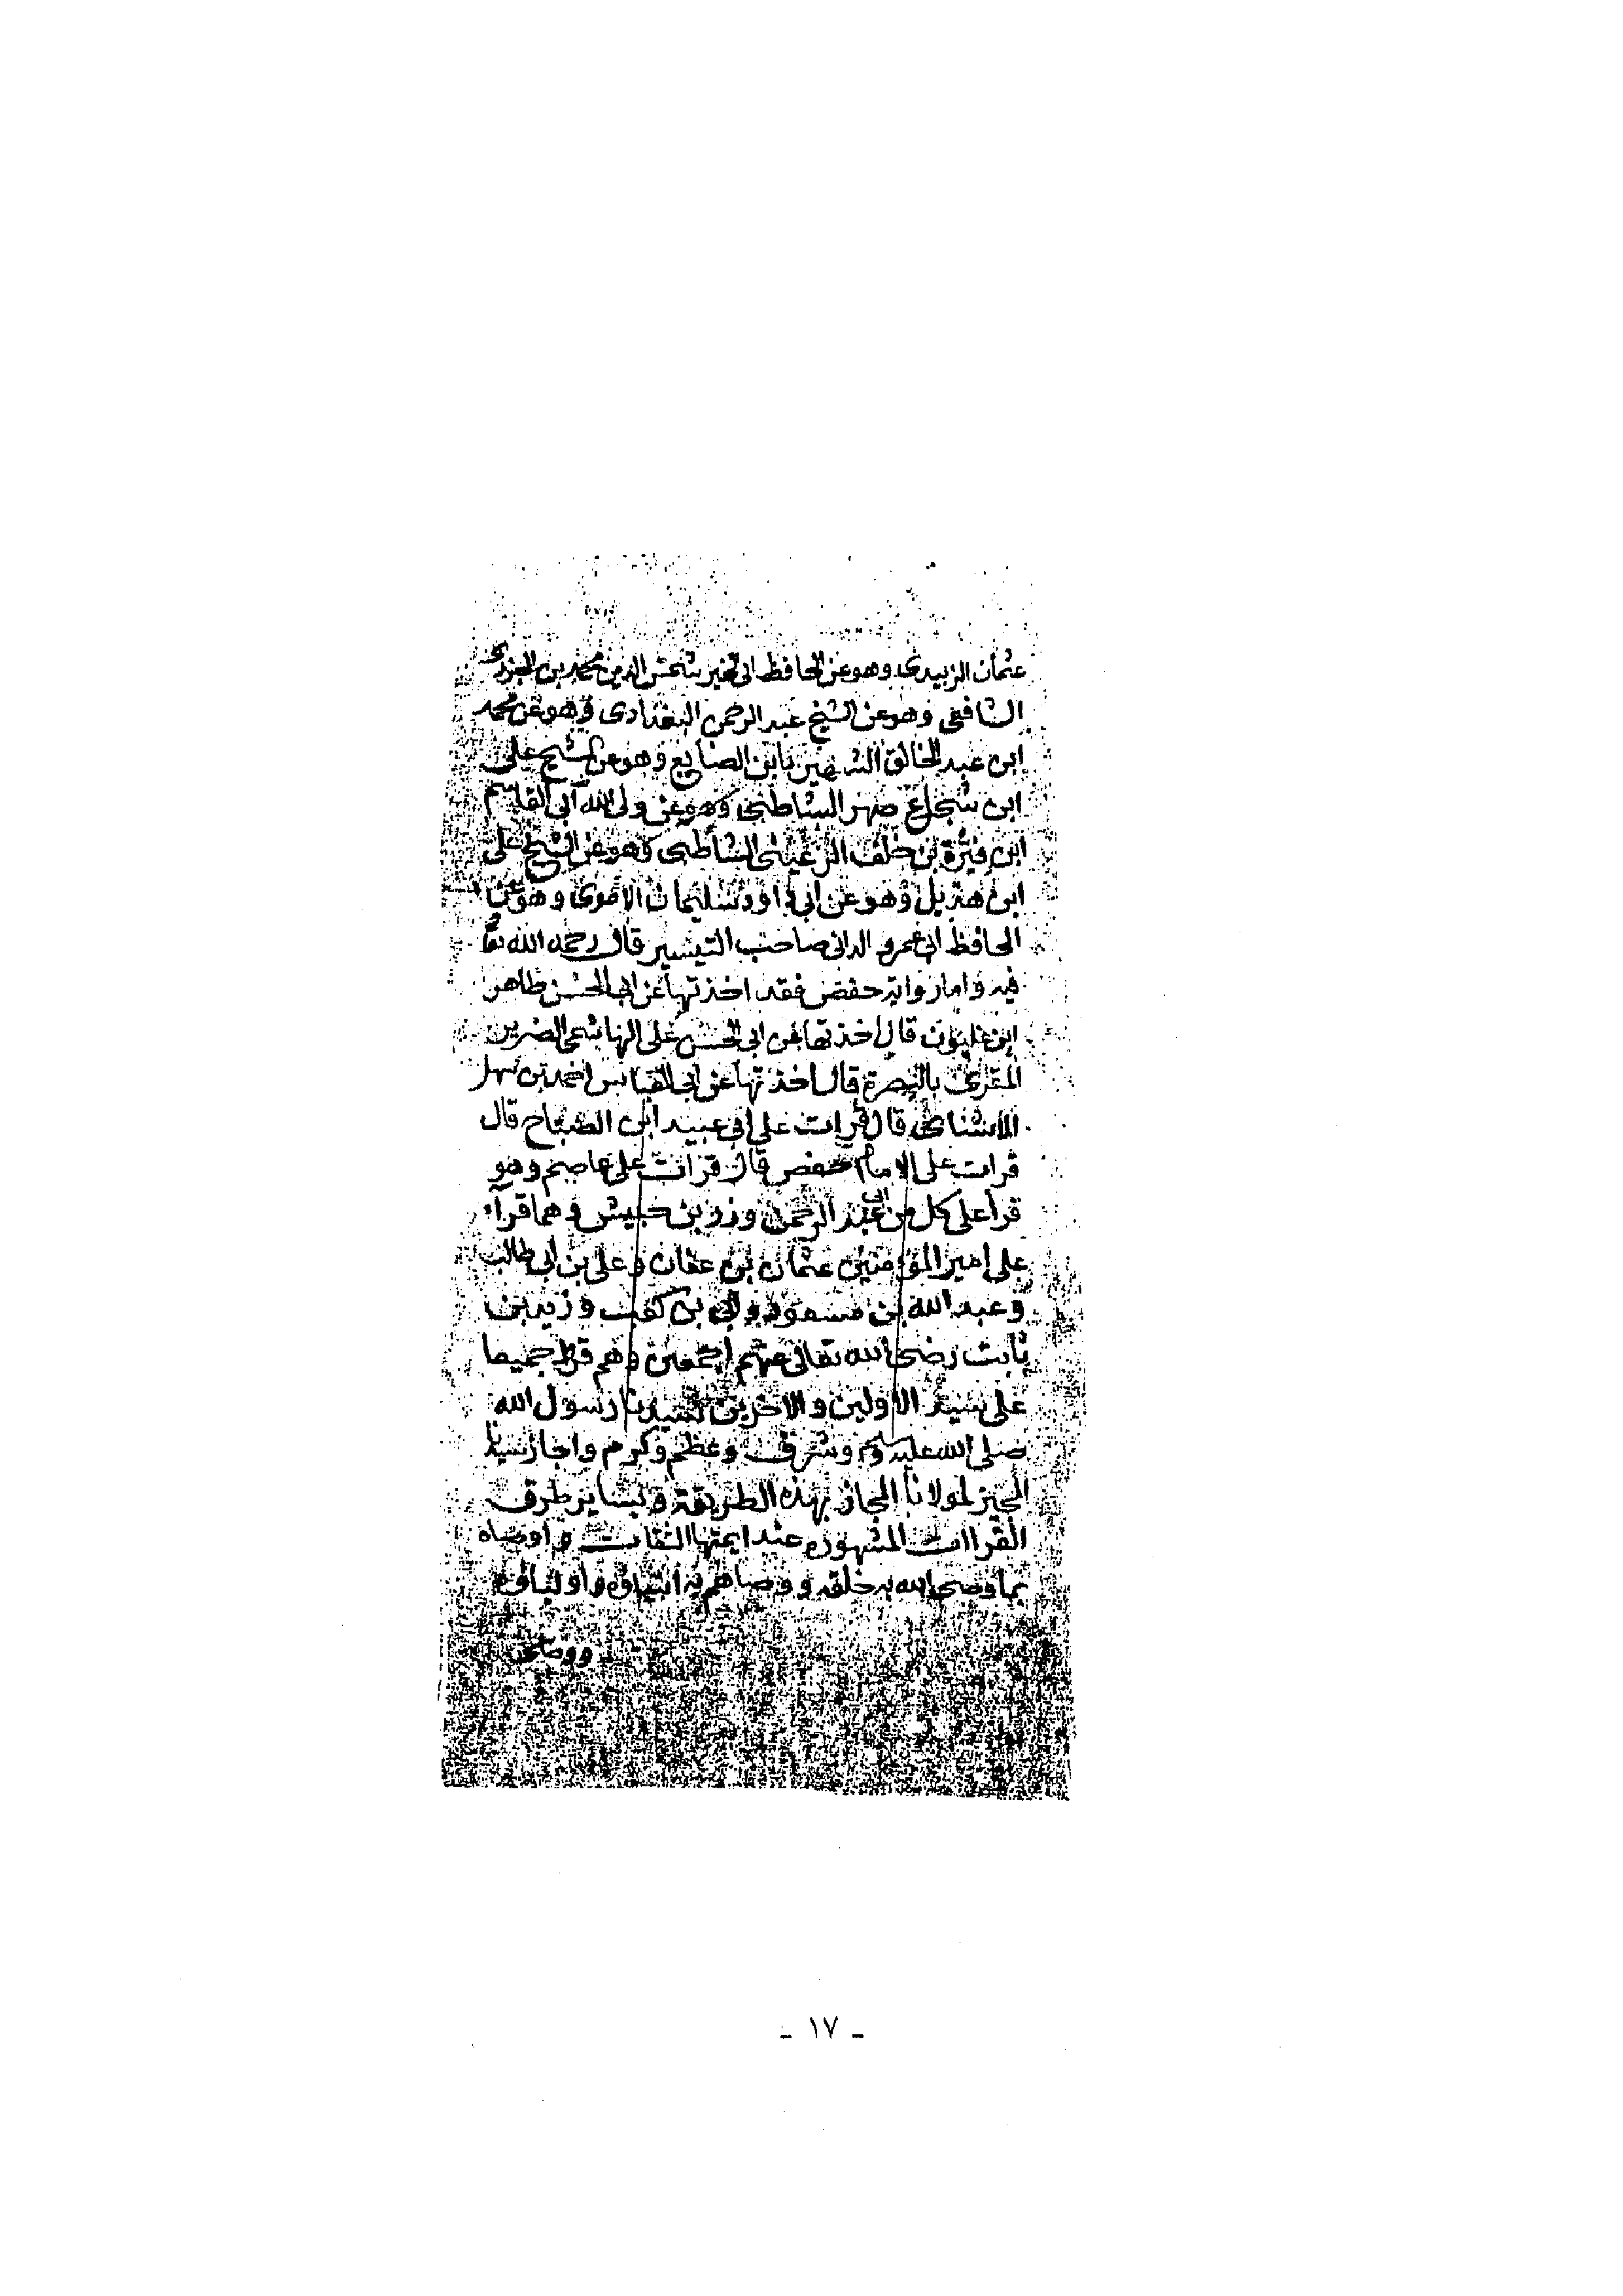 عثمان الزبيدى وهو عن الحافظ ابى الخير شمس الدين محمد بن الجزرى
الشافعى وهو عن الشيخ عبد الرحمن البغدادى وهو عن محمد
ابن عبد الخالق الشهير بابن الصايغ وهو عن الشيخ على
ابن شجاع صهر الشاطبى وهو عن ولى الله ابى القاسم
ابن فيرة بن خلف الرعينى الشاطبى وهو عن الشيخ على
ابن هذيل وهو عن ابى داود سليمان الاموى وهو عن
الحافظ ابى عمرو الدانى صاحب التيسير قال رحمه الله تعا
فيه واما رواية حفص فقد اخذتها عن ابى الحسن طاهر
ابن غلبون قال اخذتها عن ابى الحسن على الهاشمى الضرير
المقرئ بالبصرة قال اخذتها عن ابى العباس احمد بن سهل
الاشنانى قال قرات على ابى عبيد ابن الصباح قال
قرات على الامام حفص قال قرات على عاصم وهو
قرا على كل من ابى عبد الرحمن وزر بن حبيش وهما قرآء
على امير المؤمنين عثمان بن عفان وعلى بن ابى طالب
وعبد الله بن مسعود وابى بن كعب وزيد بن
ثابت رضى الله تعالى عنهم اجمعين وهم قرؤا جميعا
على سيد الاولين والاخرين سيدنا رسول الله
صلى الله عليه وسلم وشرف وعظم وكرم واجاز سيدنا
المجيز لمولانا المجاز بهذه الطريقة وبساير طرق
القراات المشهوره عند ايمتها الثقات واوصاه
بما وصى الله به خلقه ووصاهم به انبياؤه واولياؤه
ووصانى
- ١٧ -